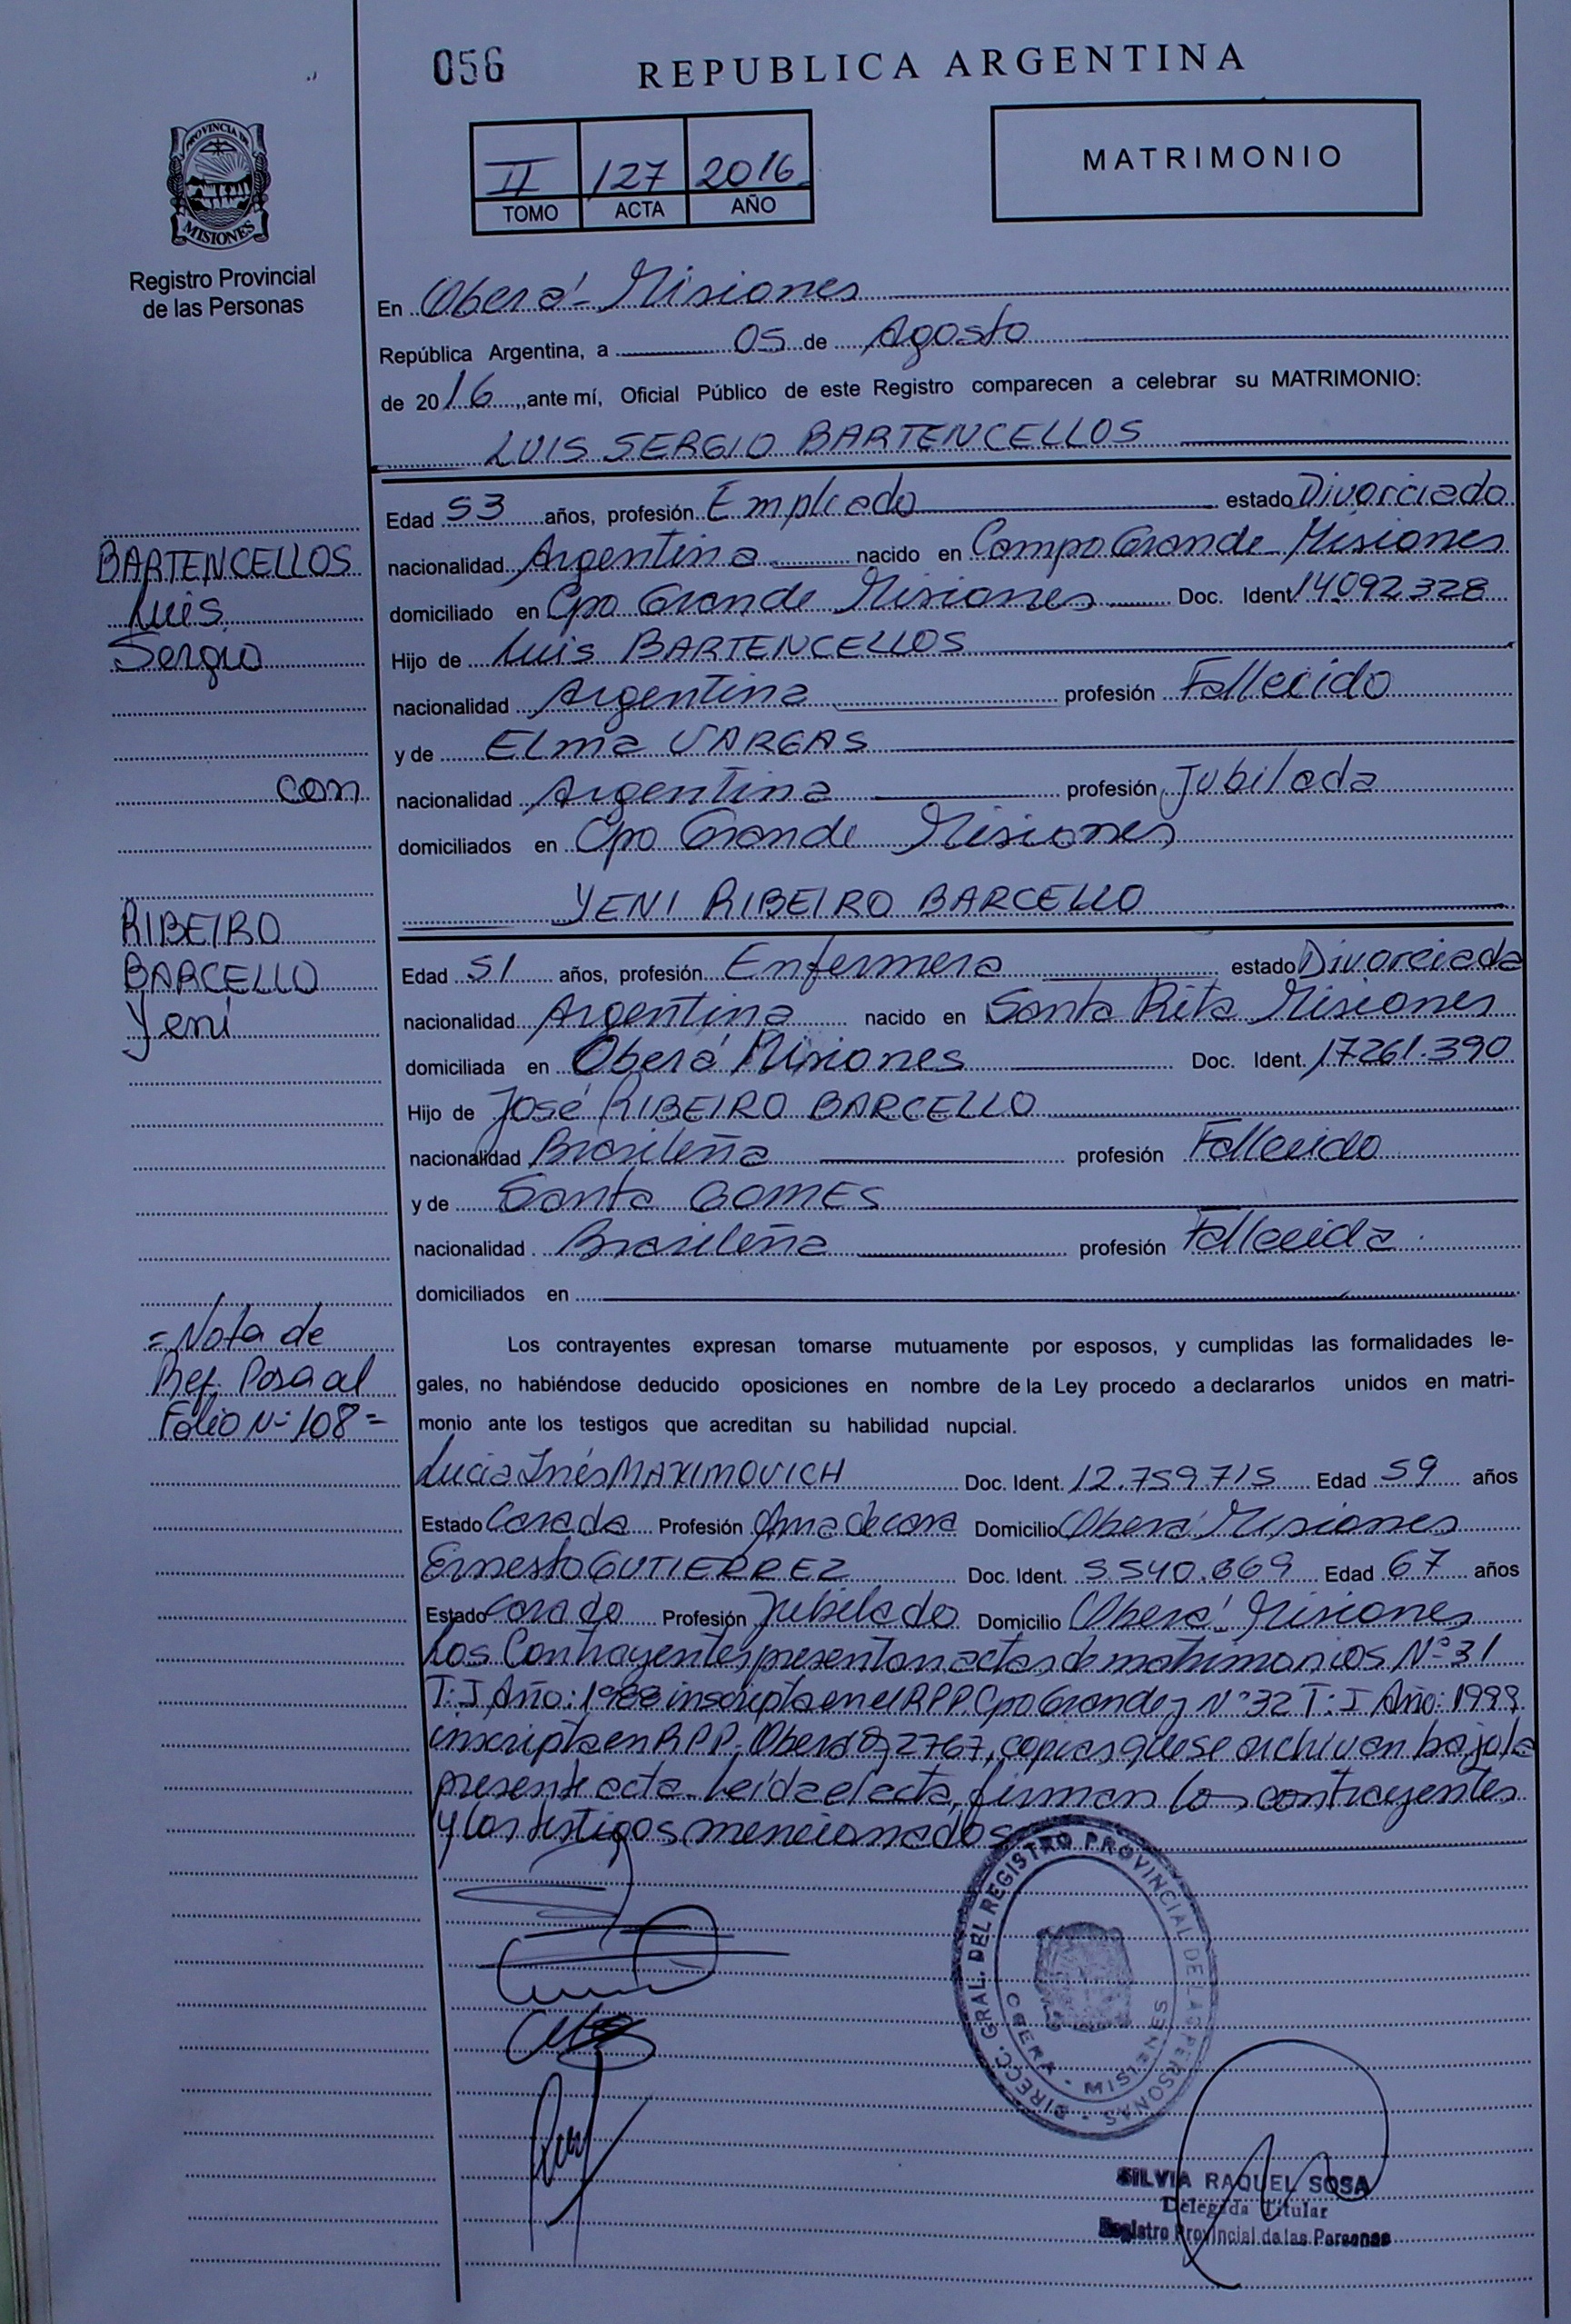 056
REPUBLICA ARGENTINA
II 127 2016
TOMO ACTA AÑO
MATRIMONIO
PROVINCIA DE
MISIONES
Registro Provincial
de las Personas
En Oberá - Misiones
República Argentina, a 05 de Agosto
de 2016, ante mí, Oficial Público de este Registro comparecen a celebrar su MATRIMONIO:
LUIS SERGIO BARTENCELLOS
Edad 53 años, profesión Empleado estado Divorciado
BARTENCELLOS
Luis
Sergio
con
RIBEIRO
BARCELLO
Yeni
nacionalidad Argentina nacido en Campo Grande Misiones
domiciliado en Cpo Grande Misiones Doc. Ident. 14.092.328
Hijo de Luis BARTENCELLOS
nacionalidad Argentina profesión Fallecido
y de Elma VARGAS
nacionalidad Argentina profesión Jubilada
domiciliados en Cpo Grande Misiones
YENI RIBEIRO BARCELLO
Edad 51 años, profesión Enfermera estado Divorciada
nacionalidad Argentina nacido en Santa Rita Misiones
domiciliada en Oberá Misiones Doc. Ident. 17261.390
Hijo de José RIBEIRO BARCELLO
nacionalidad Brasileña profesión Fallecido
y de Santa GOMES
nacionalidad Brasileña profesión Fallecida
domiciliados en
= Nota de
Ref. Pasa al
Folio Nº 108 =
Los contrayentes expresan tomarse mutuamente por esposos, y cumplidas las formalidades le-
gales, no habiéndose deducido oposiciones en nombre de la Ley procedo a declararlos unidos en matri-
monio ante los testigos que acreditan su habilidad nupcial.
Lucia Inés MAXIMOVICH Doc. Ident. 12.759.715 Edad 59 años
Estado Casada Profesión Ama de casa Domicilio Oberá Misiones
Ernesto GUTIERREZ Doc. Ident. 5.540.869 Edad 67 años
Estado Casado Profesión Jubilado Domicilio Oberá Misiones
Los Contrayentes presentan actas de matrimonios Nº 31
T: I Año: 1988 inscripta en el RPP. Cpo Grande y Nº 32 T: I Año: 1999
inscripta en RPP. Oberá 2767, copias que se archivan bajo la
presente acta. Leída el acta, firman los contrayentes
y los testigos mencionados
DIRECC. GRAL. DEL REGISTRO PROVINCIAL DE LAS PERSONAS
OBERA - MISIONES
SILVIA RAQUEL SOSA
Delegada Titular
Registro Provincial de las Personas